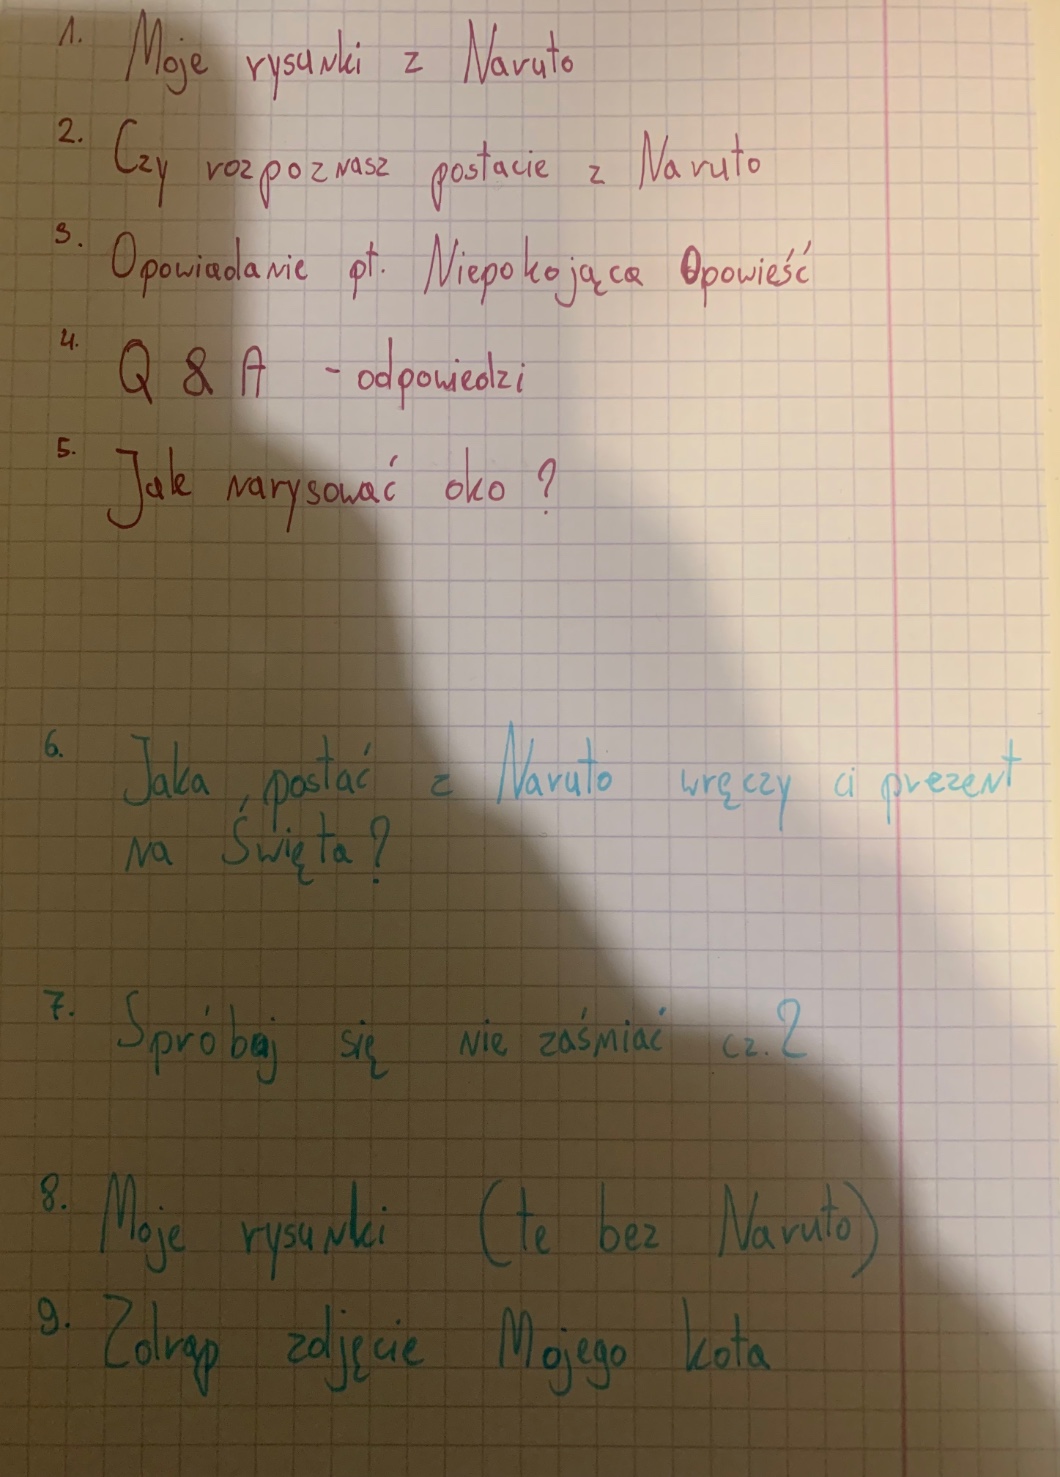 1. Moje rysunki z Naruto
2. Czy rozpoznasz postacie z Naruto
3. Opowiadanie pt. Niepokojąca Opowieść
4. Q & A - odpowiedzi
5. Jak narysować oko?
6. Jaka postać z Naruto wręczy ci prezent
na Święta?
7. Spróbuj się nie zaśmiać cz. 2
8. Moje rysunki (te bez Naruto)
9. Zdrap zdjęcie Mojego kota